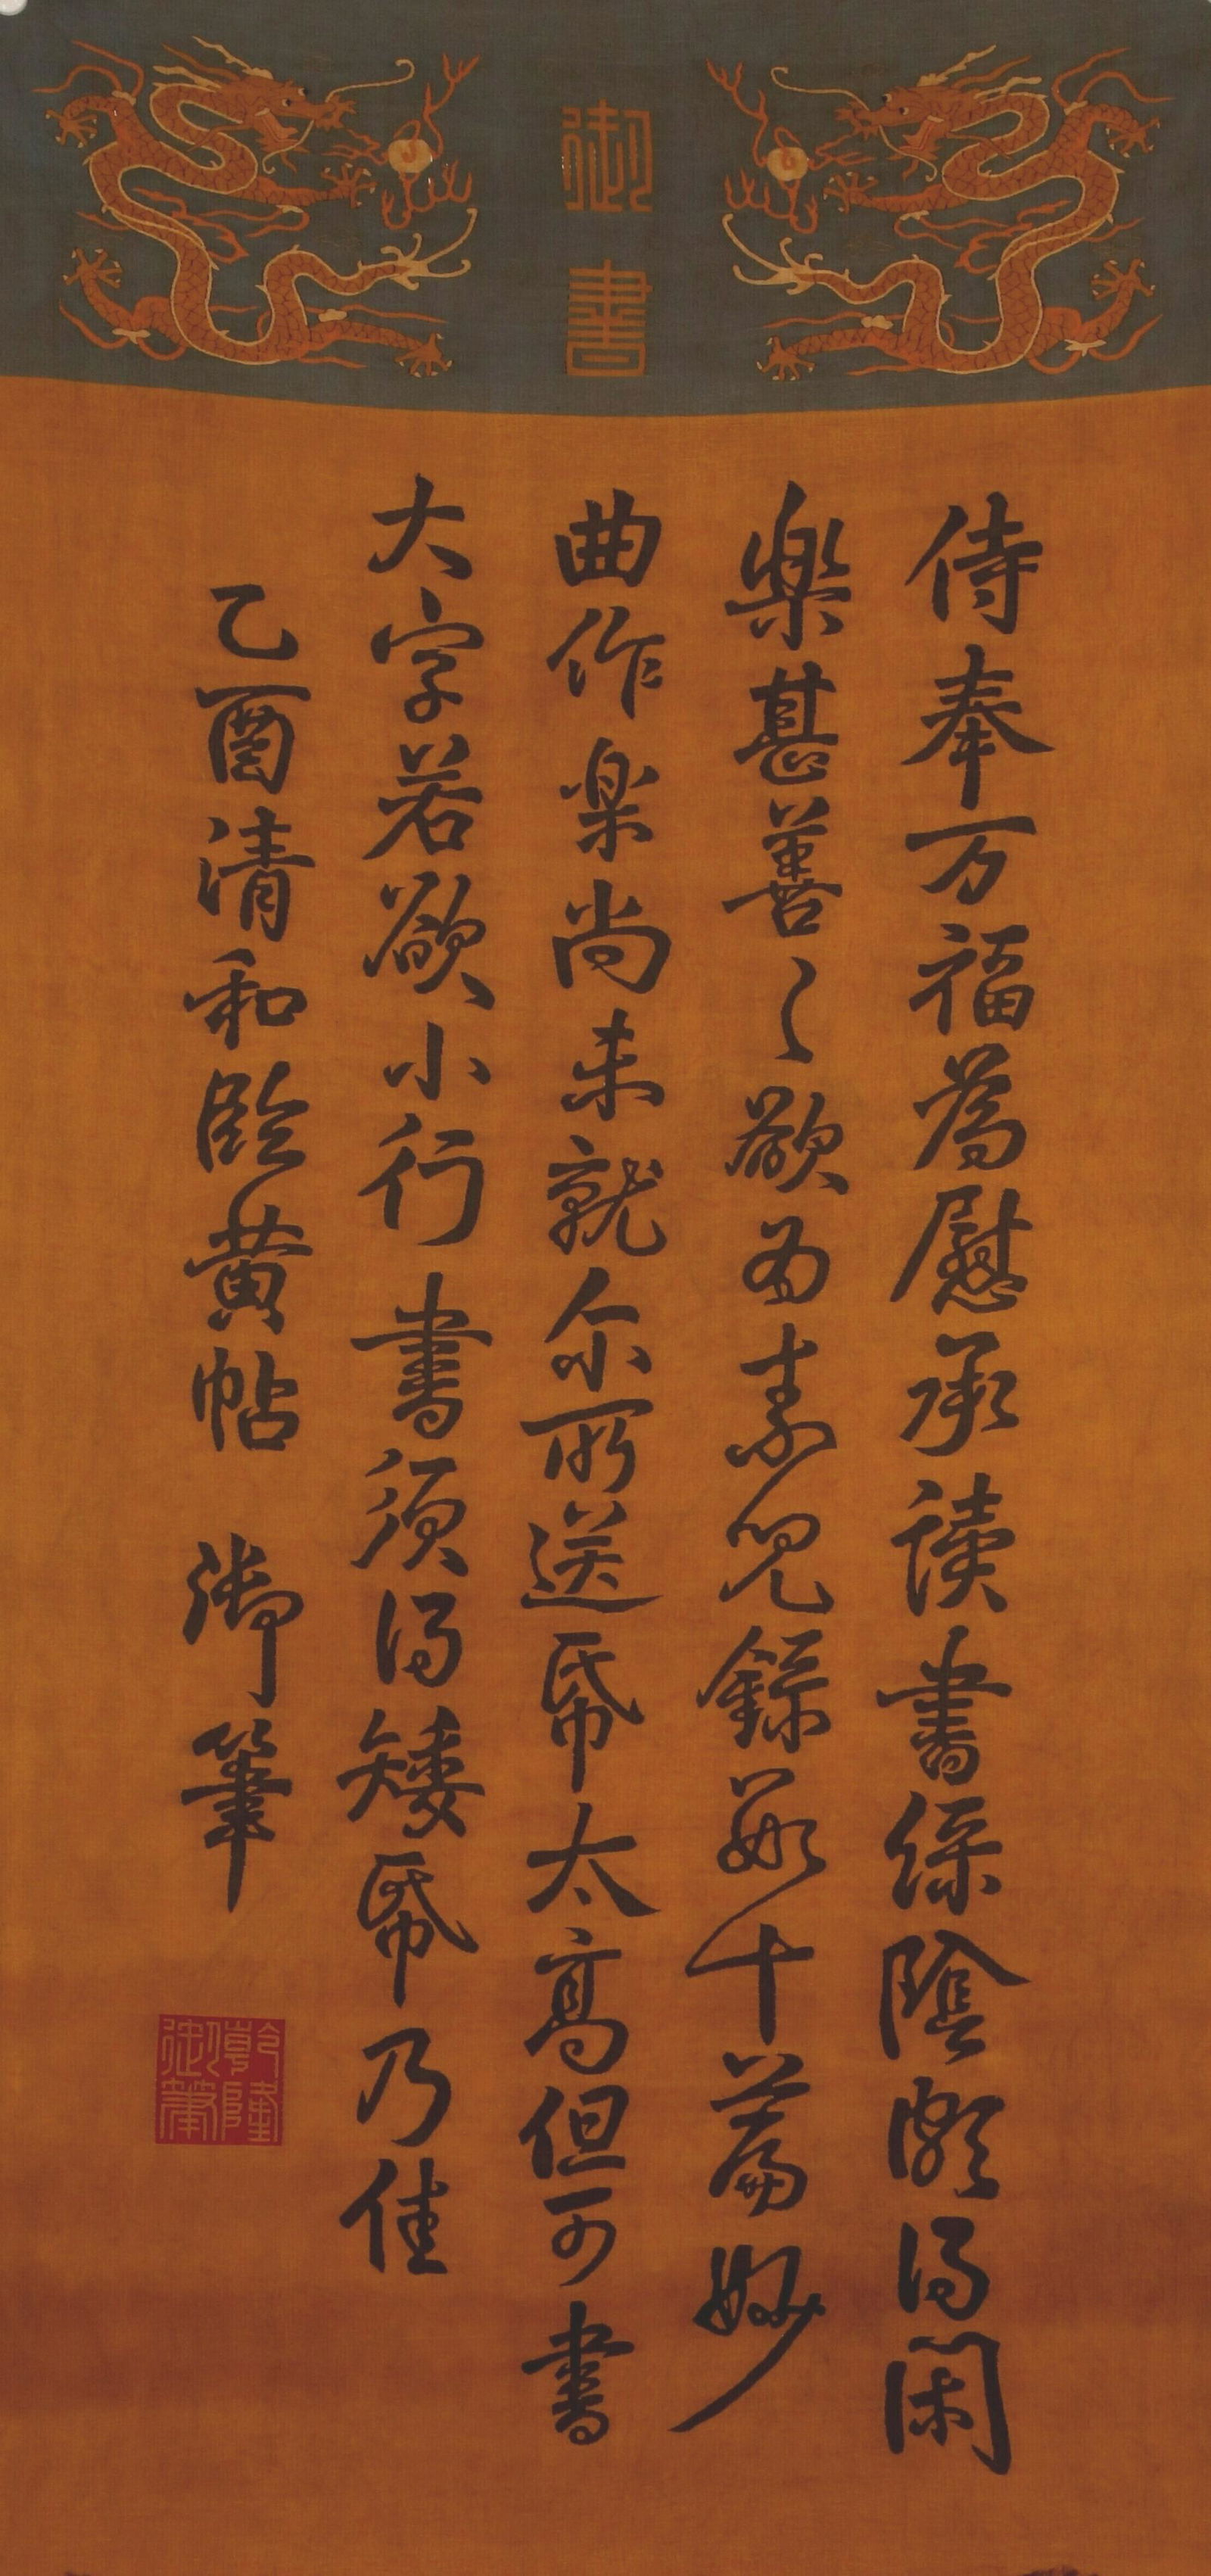 御書
侍奉万福為慰承读書緑陰頗得閑
樂甚善〻欲為素兒録數十篇妙
曲作樂尚未就尒所送帋太高但可書
大字若欲小行書須得矮帋乃佳
乙酉清和臨黄帖 御筆
乾隆御筆